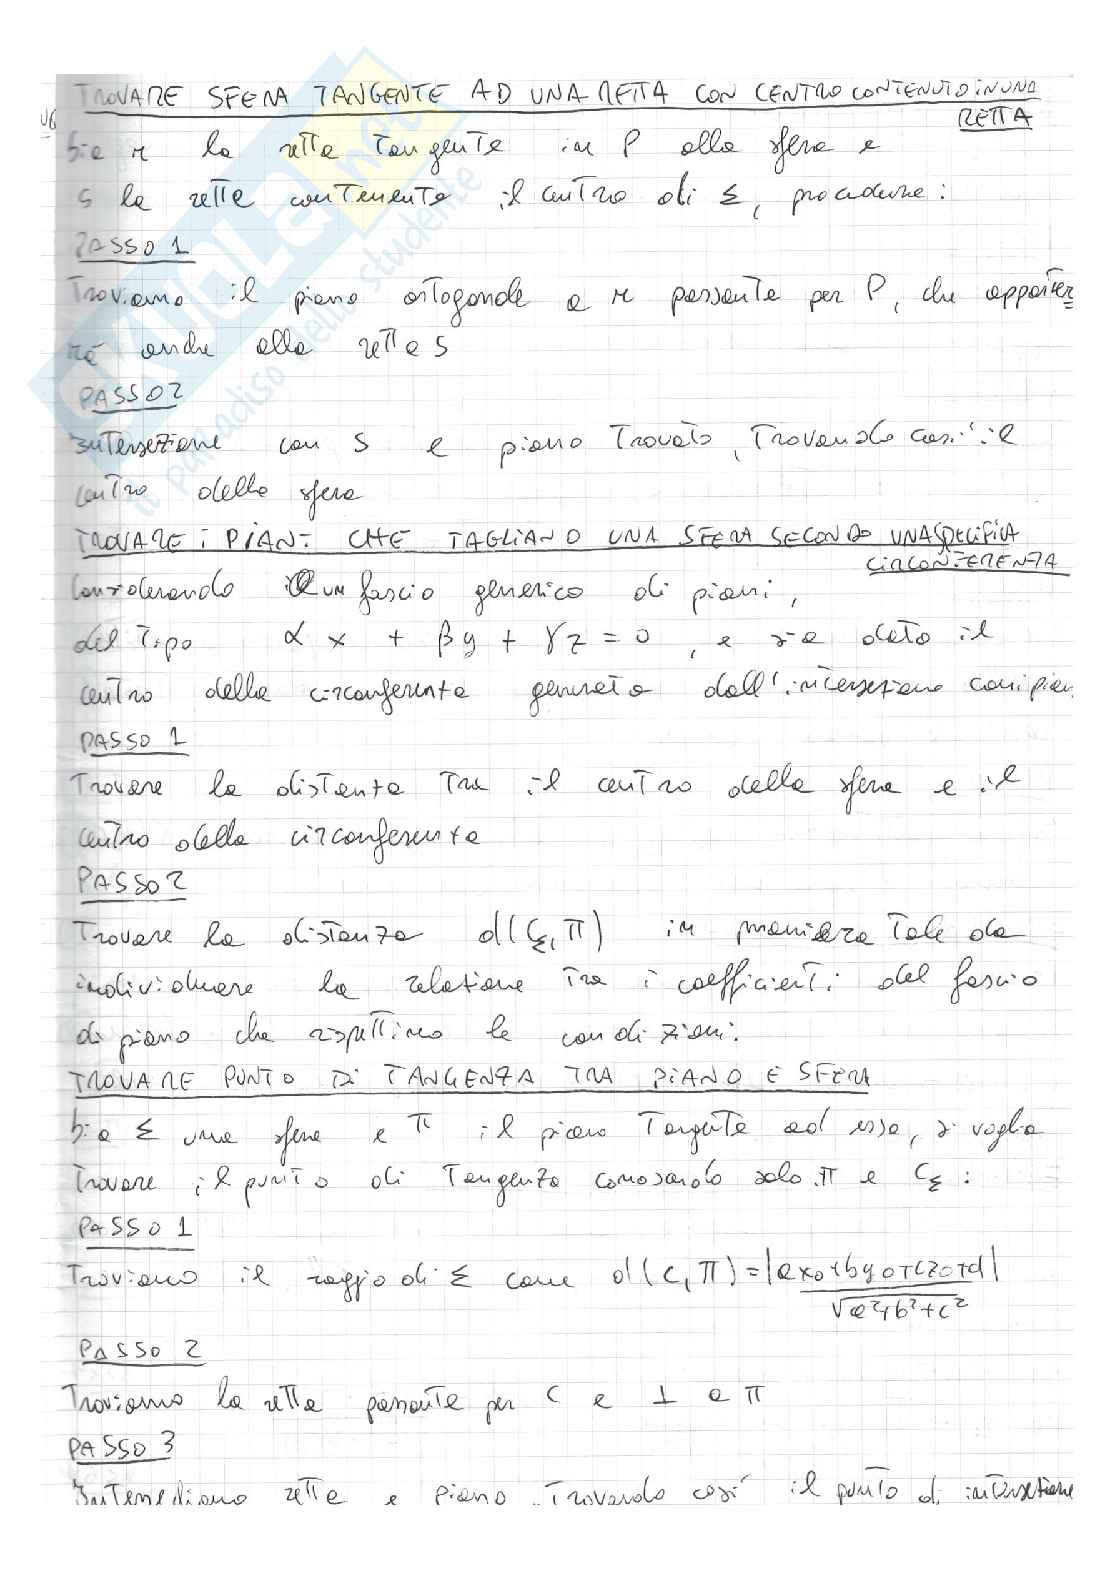 TROVARE SFERA TANGENTE AD UNA RETTA CON CENTRO CONTENUTO IN UNA
RETTA
Sia r la retta tangente in P alla sfera e
s la retta contenente il centro di Σ, procedure:
PASSO 1
Troviamo il piano ortogonale a r passante per P, che apparter
rà anche alla retta s
PASSO 2
Intersezione con s e piano trovato, trovando così il
centro della sfera
TROVARE i PIANI CHE TAGLIANO UNA SFERA SECONDO UNA SPECIFICA
CIRCONFERENZA
Considerando un fascio generico di piani,
del tipo αx + βy + γz = 0, e sia dato il
centro della circonferenza generata dall'intersezione con i pian
PASSO 1
Trovare la distanza tra il centro della sfera e il
centro della circonferenza
PASSO 2
Trovare la distanza d(C_Σ, π) in maniera tale da
individuare la relazione tra i coefficienti del fascio
di piano che rispettino le condizioni.
TROVARE PUNTO DI TANGENZA TRA PIANO E SFERA
Sia Σ una sfera e π il piano tangente ad essa, si voglia
trovare il punto di tangenza conoscendo solo π e C_Σ :
PASSO 1
Troviamo il raggio di Σ come d(C, π) = |ax₀+by₀+cz₀+d|
√a²+b²+c²
PASSO 2
Troviamo la retta passante per C e ⊥ a π
PASSO 3
Intersediamo retta e piano trovando così il punto di intersezione
skuola.net
il paradiso dello studente